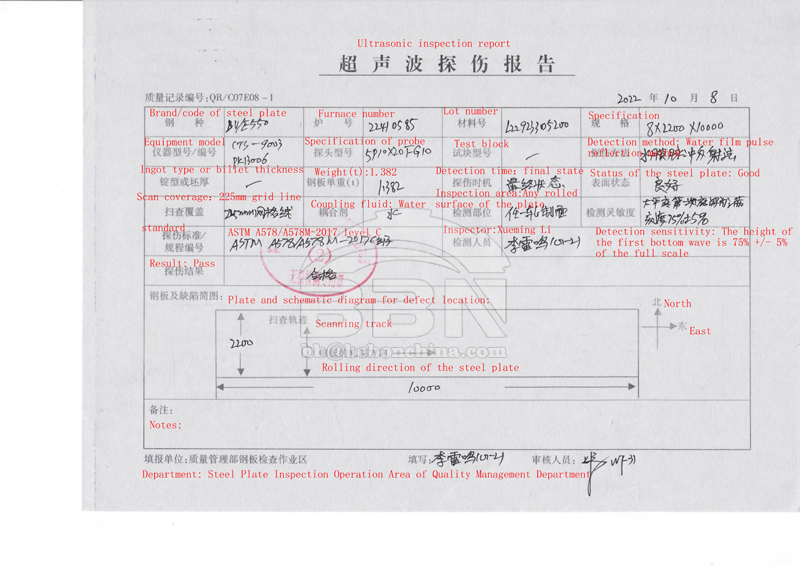 Ultrasonic inspection report
超声波探伤报告
质量记录编号:QR/C07E08-1 2022 年 10 月 8 日
Brand/code of steel plate Furnace number Lot number Specification
钢 种 炉 号 22410585 材料号 规 格 8X2200 X10000
Equipment model Specification of probe Test block Detection method: Water film pulse reflection
仪器型号/编号 CTS-9003 探头型号 试块型号 —
PK13006
Ingot type or billet thickness Weight(t):1.382 Detection time: final state Status of the steel plate: Good
锭型或坯厚 — 钢板单重(t) 1.382 探伤时机 最终状态 表面状态 良好
Scan coverage: 225mm grid line Coupling fluid: Water Inspection area:Any rolled surface of the plate.
扫查覆盖 耦合剂 水 检测部位 任一轧制面 检测灵敏度
standard ASTM A578/A578M-2017/level C Inspector:Xueming Li Detection sensitivity: The height of the first bottom wave is 75% +/- 5% of the full scale
探伤标准/
规程编号 ASTM A578/A578M-2017C 检测人员 李雷鸣(UT-2)
Result: Pass
探伤结果 合格
(2)
钢板及缺陷简图: Plate and schematic diagram for defect location:
北 North
东 East
扫查轨迹 Scanning track
2200
BBN
bb@bebonchina.com
Rolling direction of the steel plate
10000
备注:
Notes:
填报单位:质量管理部钢板检查作业区 填写: 李雷鸣(UT-2) 审核人员:
Department: Steel Plate Inspection Operation Area of Quality Management Department